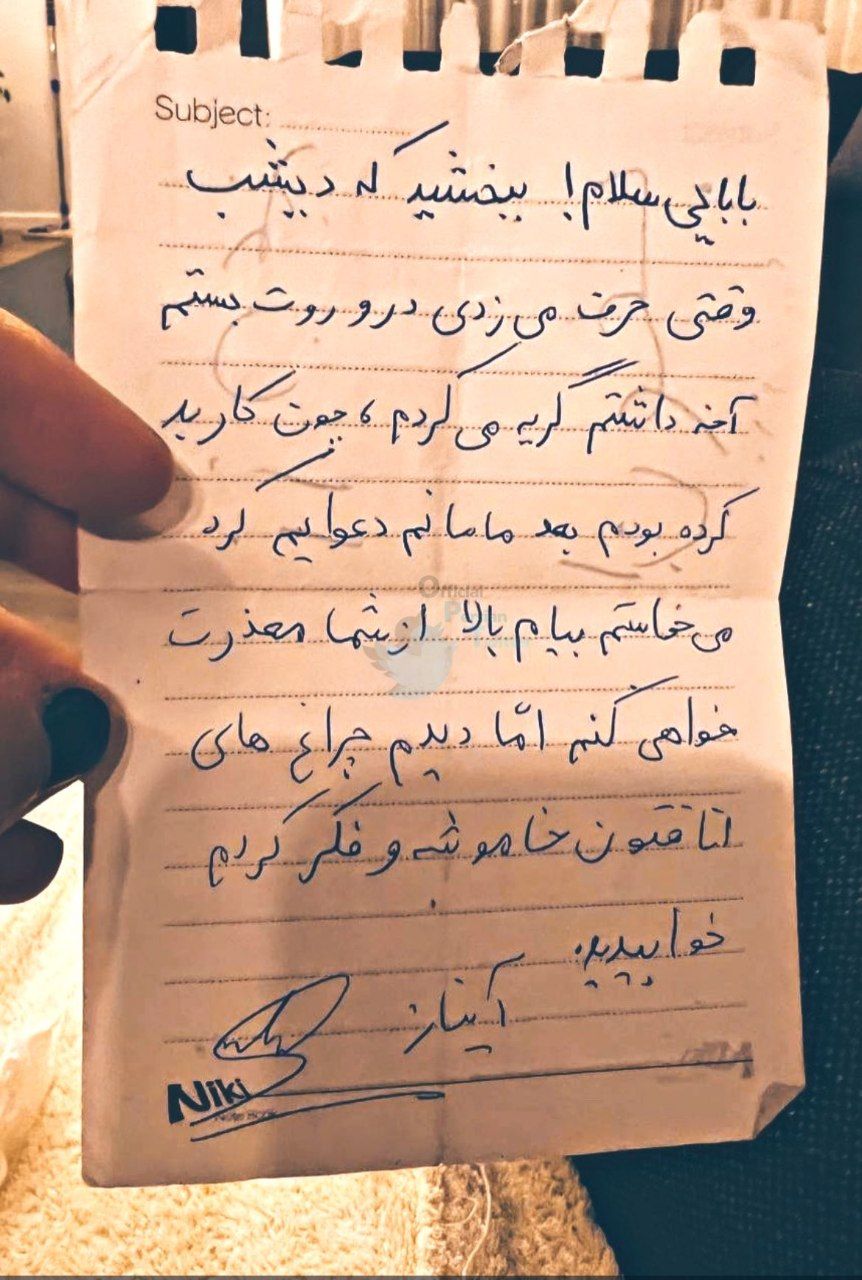 Subject:
بابایی سلام! ببخشید که دیشب
وقتی حرف می زدی در و روت بستم
آخه داشتم گریه می کردم، چون کار بد
کرده بودم بعد مامانم دعوایم کرد
می خاستم بیام بالا از شما معذرت
خواهی کنم امّا دیدم چراغ های
اتاقتون خاموشه و فکر کردم
خوابیدید.
آیناز
Niki
Note Book
Official